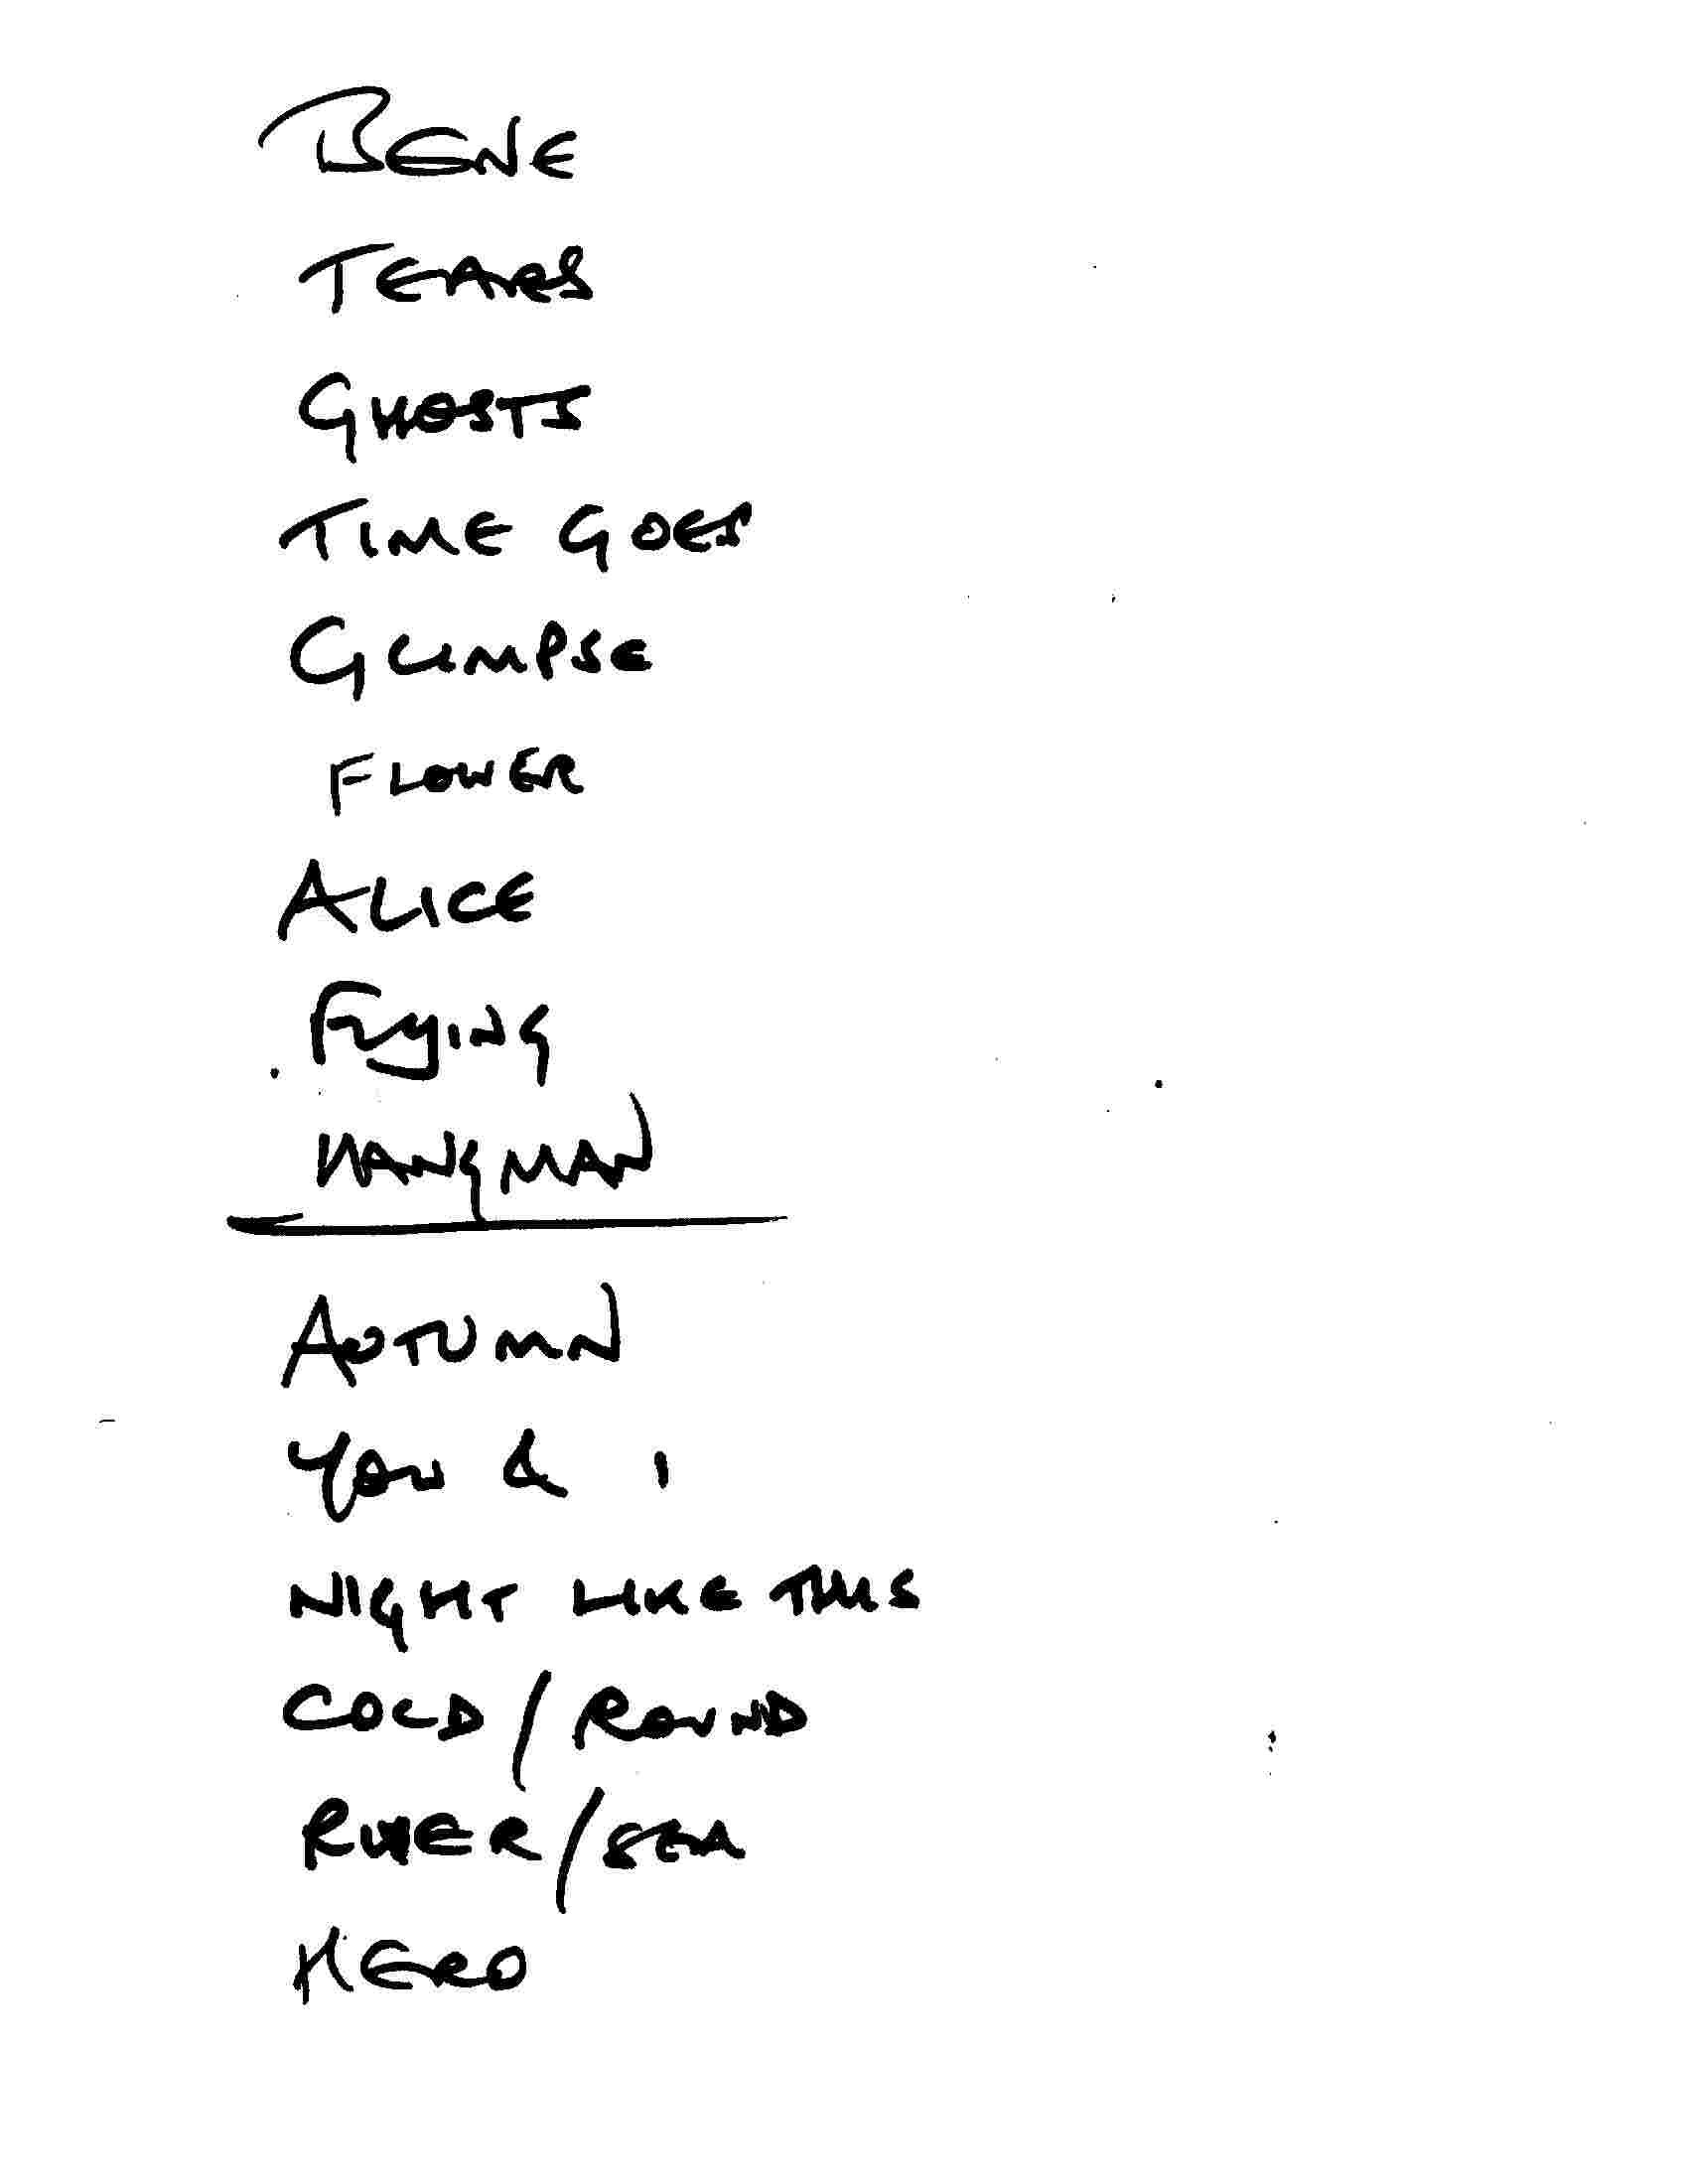 BENE
TEARS
GHOSTS
TIME GOES
GLIMPSE
FLOWER
ALICE
FLYING
HANGMAN
AUTUMN
YOU & I
NIGHT LIKE THIS
COLD / ROUND
RIVER / SEA
HERO